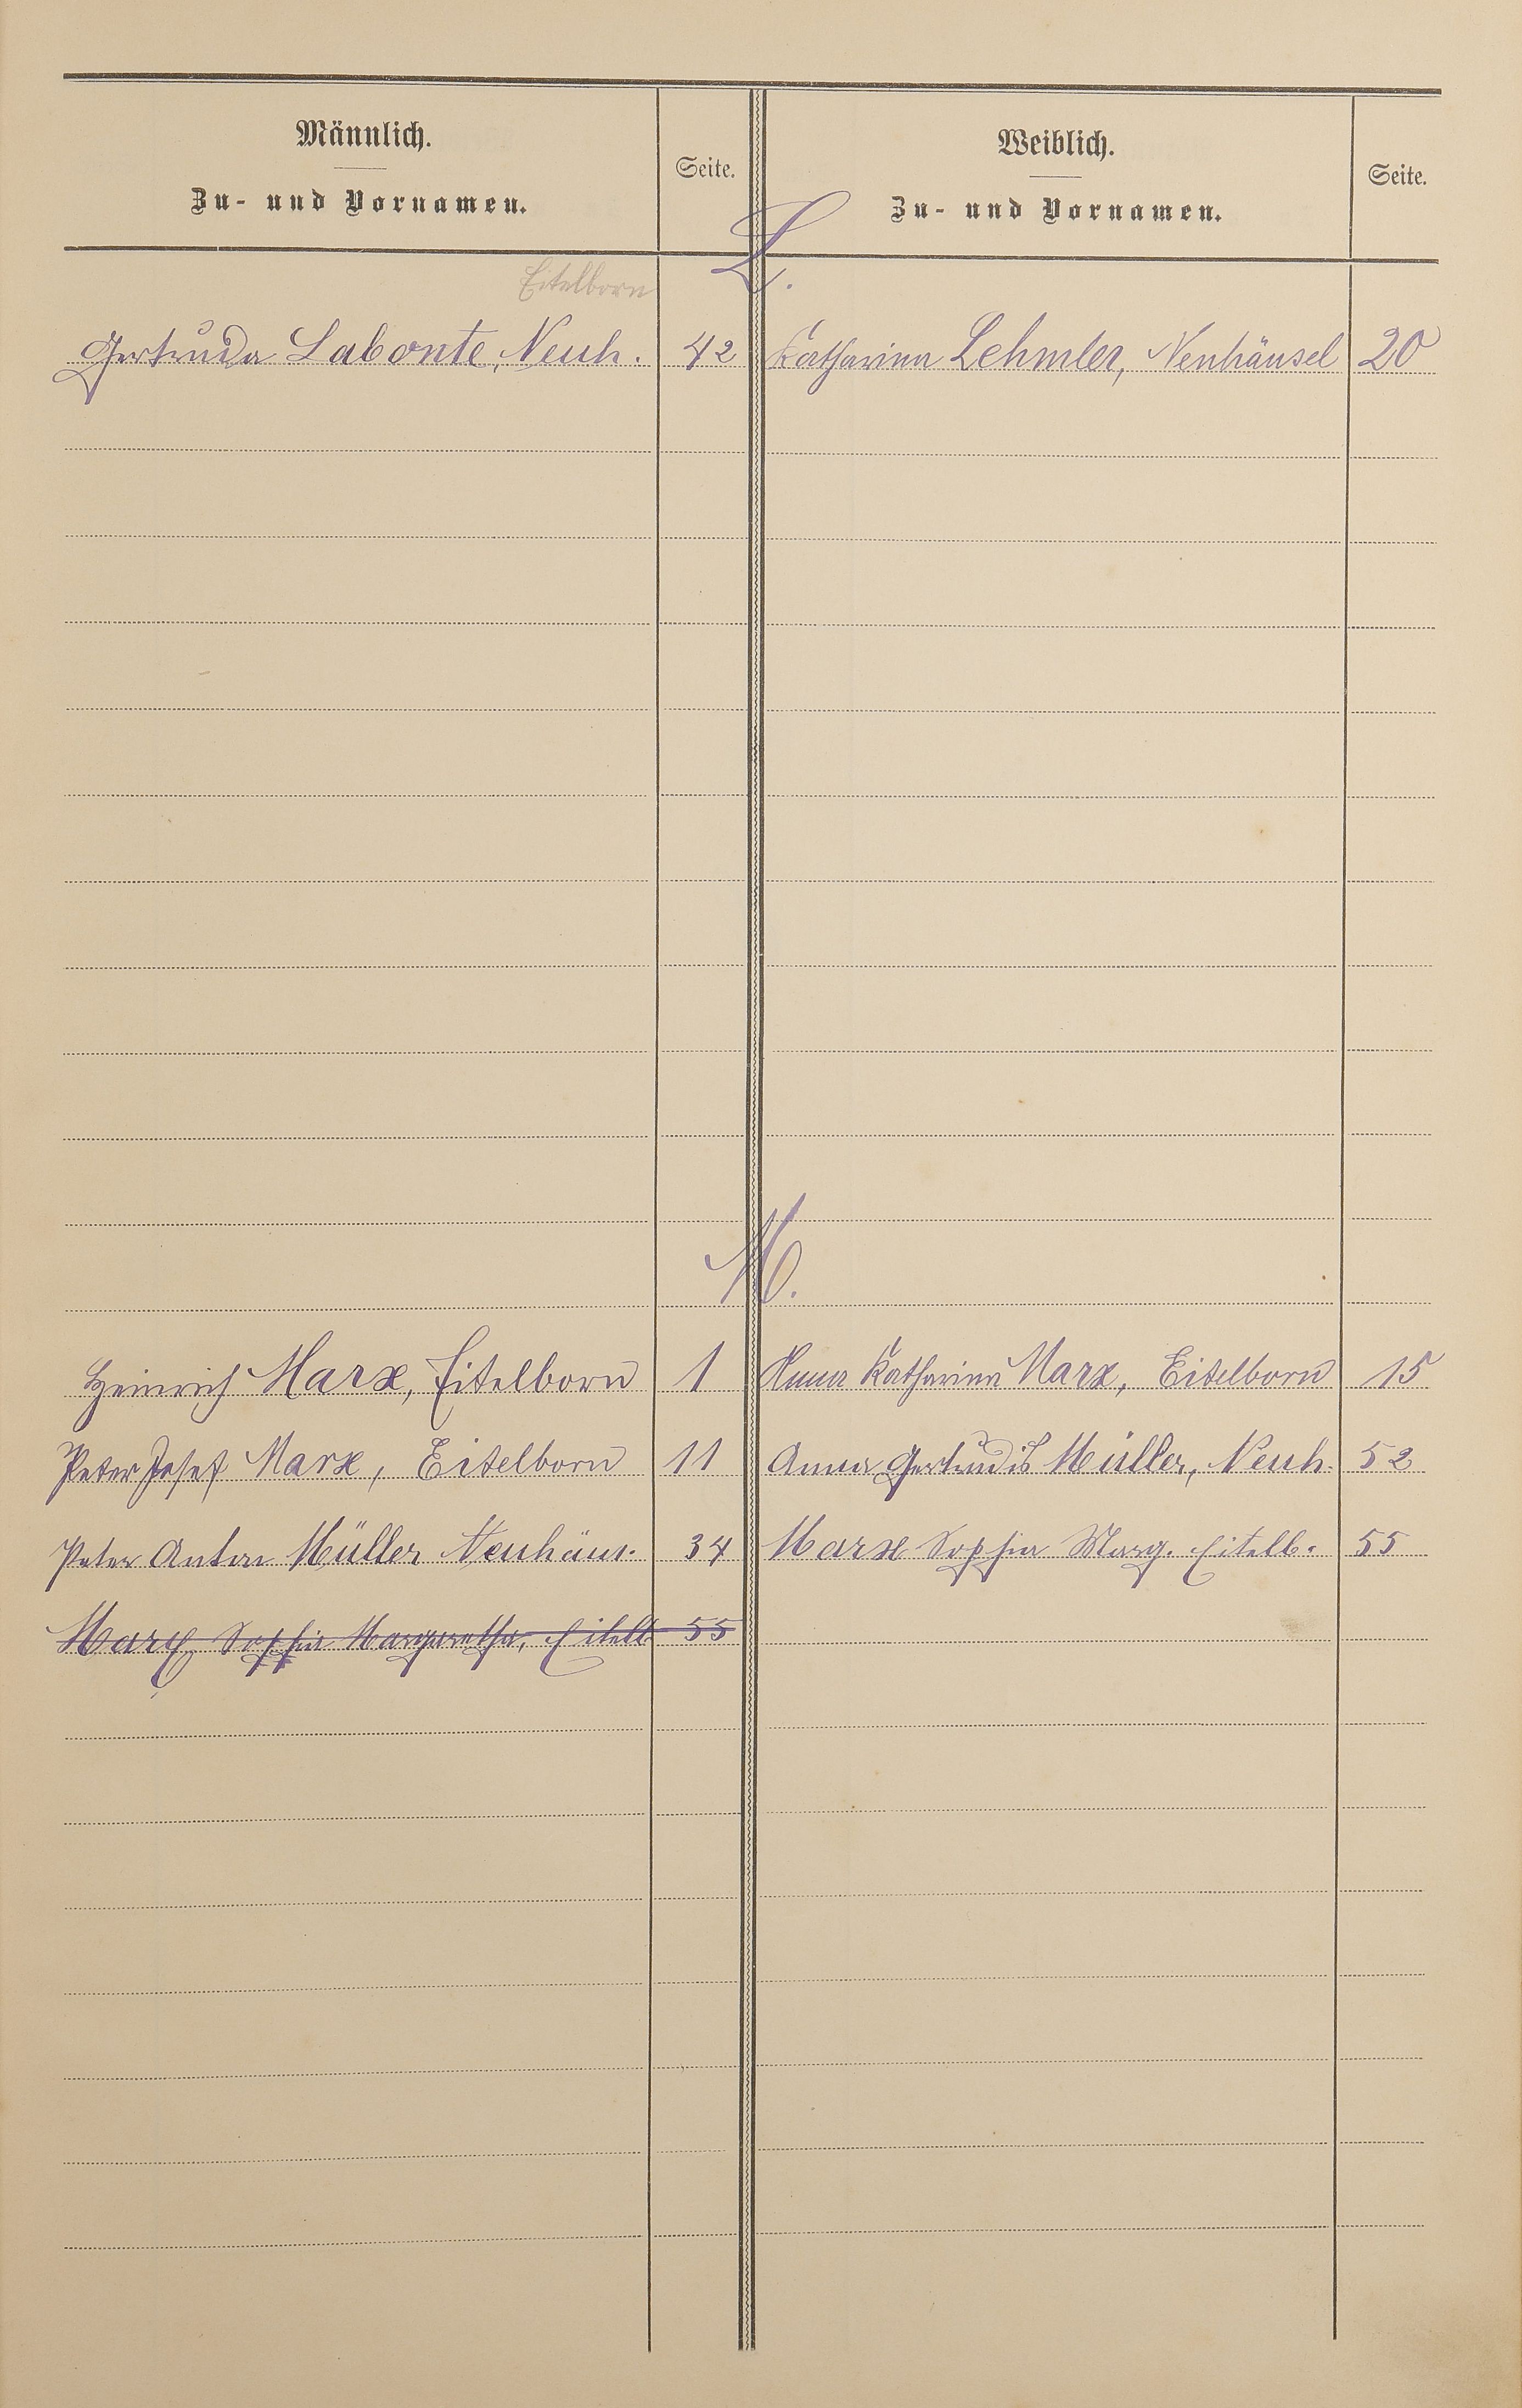 Männlich.
Zu- und Vornamen.
Seite.
Weiblich.
Zu- und Vornamen.
Seite.
L.
Eitelborn
Gertruda Labonte, Neuh. 42 Katharina Lehmler, Neuhäusel 20
M.
Heinrich Marx, Eitelborn 1 Anna Katharina Marx, Eitelborn 15
Peter Josef Marx, Eitelborn 11 Anna Gertrudis Müller, Neuh. 52
Peter Anton Müller Neuhäus. 34 Marx Sophia Marg. Eitelb. 55
Marx Sophia Margaretha, Eitelb 55